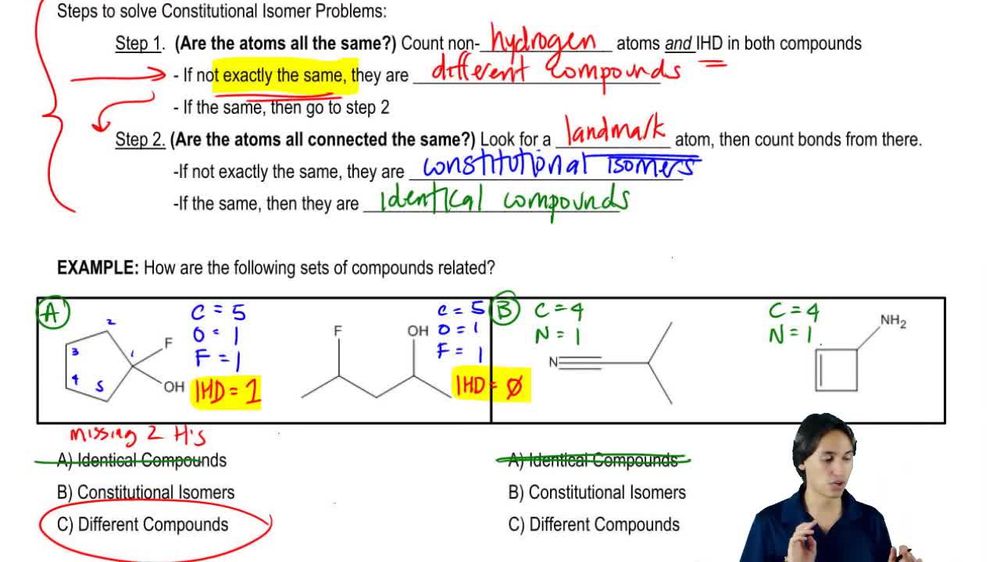 Steps to solve Constitutional Isomer Problems:
Step 1. (Are the atoms all the same?) Count non- hydrogen atoms and IHD in both compounds
- If not exactly the same, they are different compounds
- If the same, then go to step 2
Step 2. (Are the atoms all connected the same?) Look for a landmark atom, then count bonds from there.
-If not exactly the same, they are constitutional isomers
-If the same, then they are identical compounds
EXAMPLE: How are the following sets of compounds related?
A
2
1
3
4
5
F
OH
C = 5
O = 1
F = 1
IHD = 1
F
OH
C = 5
O = 1
F = 1
IHD = 0
B
C = 4
N = 1
N
C = 4
N = 1
NH2
missing 2 H's
A) Identical Compounds
B) Constitutional Isomers
C) Different Compounds
A) Identical Compounds
B) Constitutional Isomers
C) Different Compounds